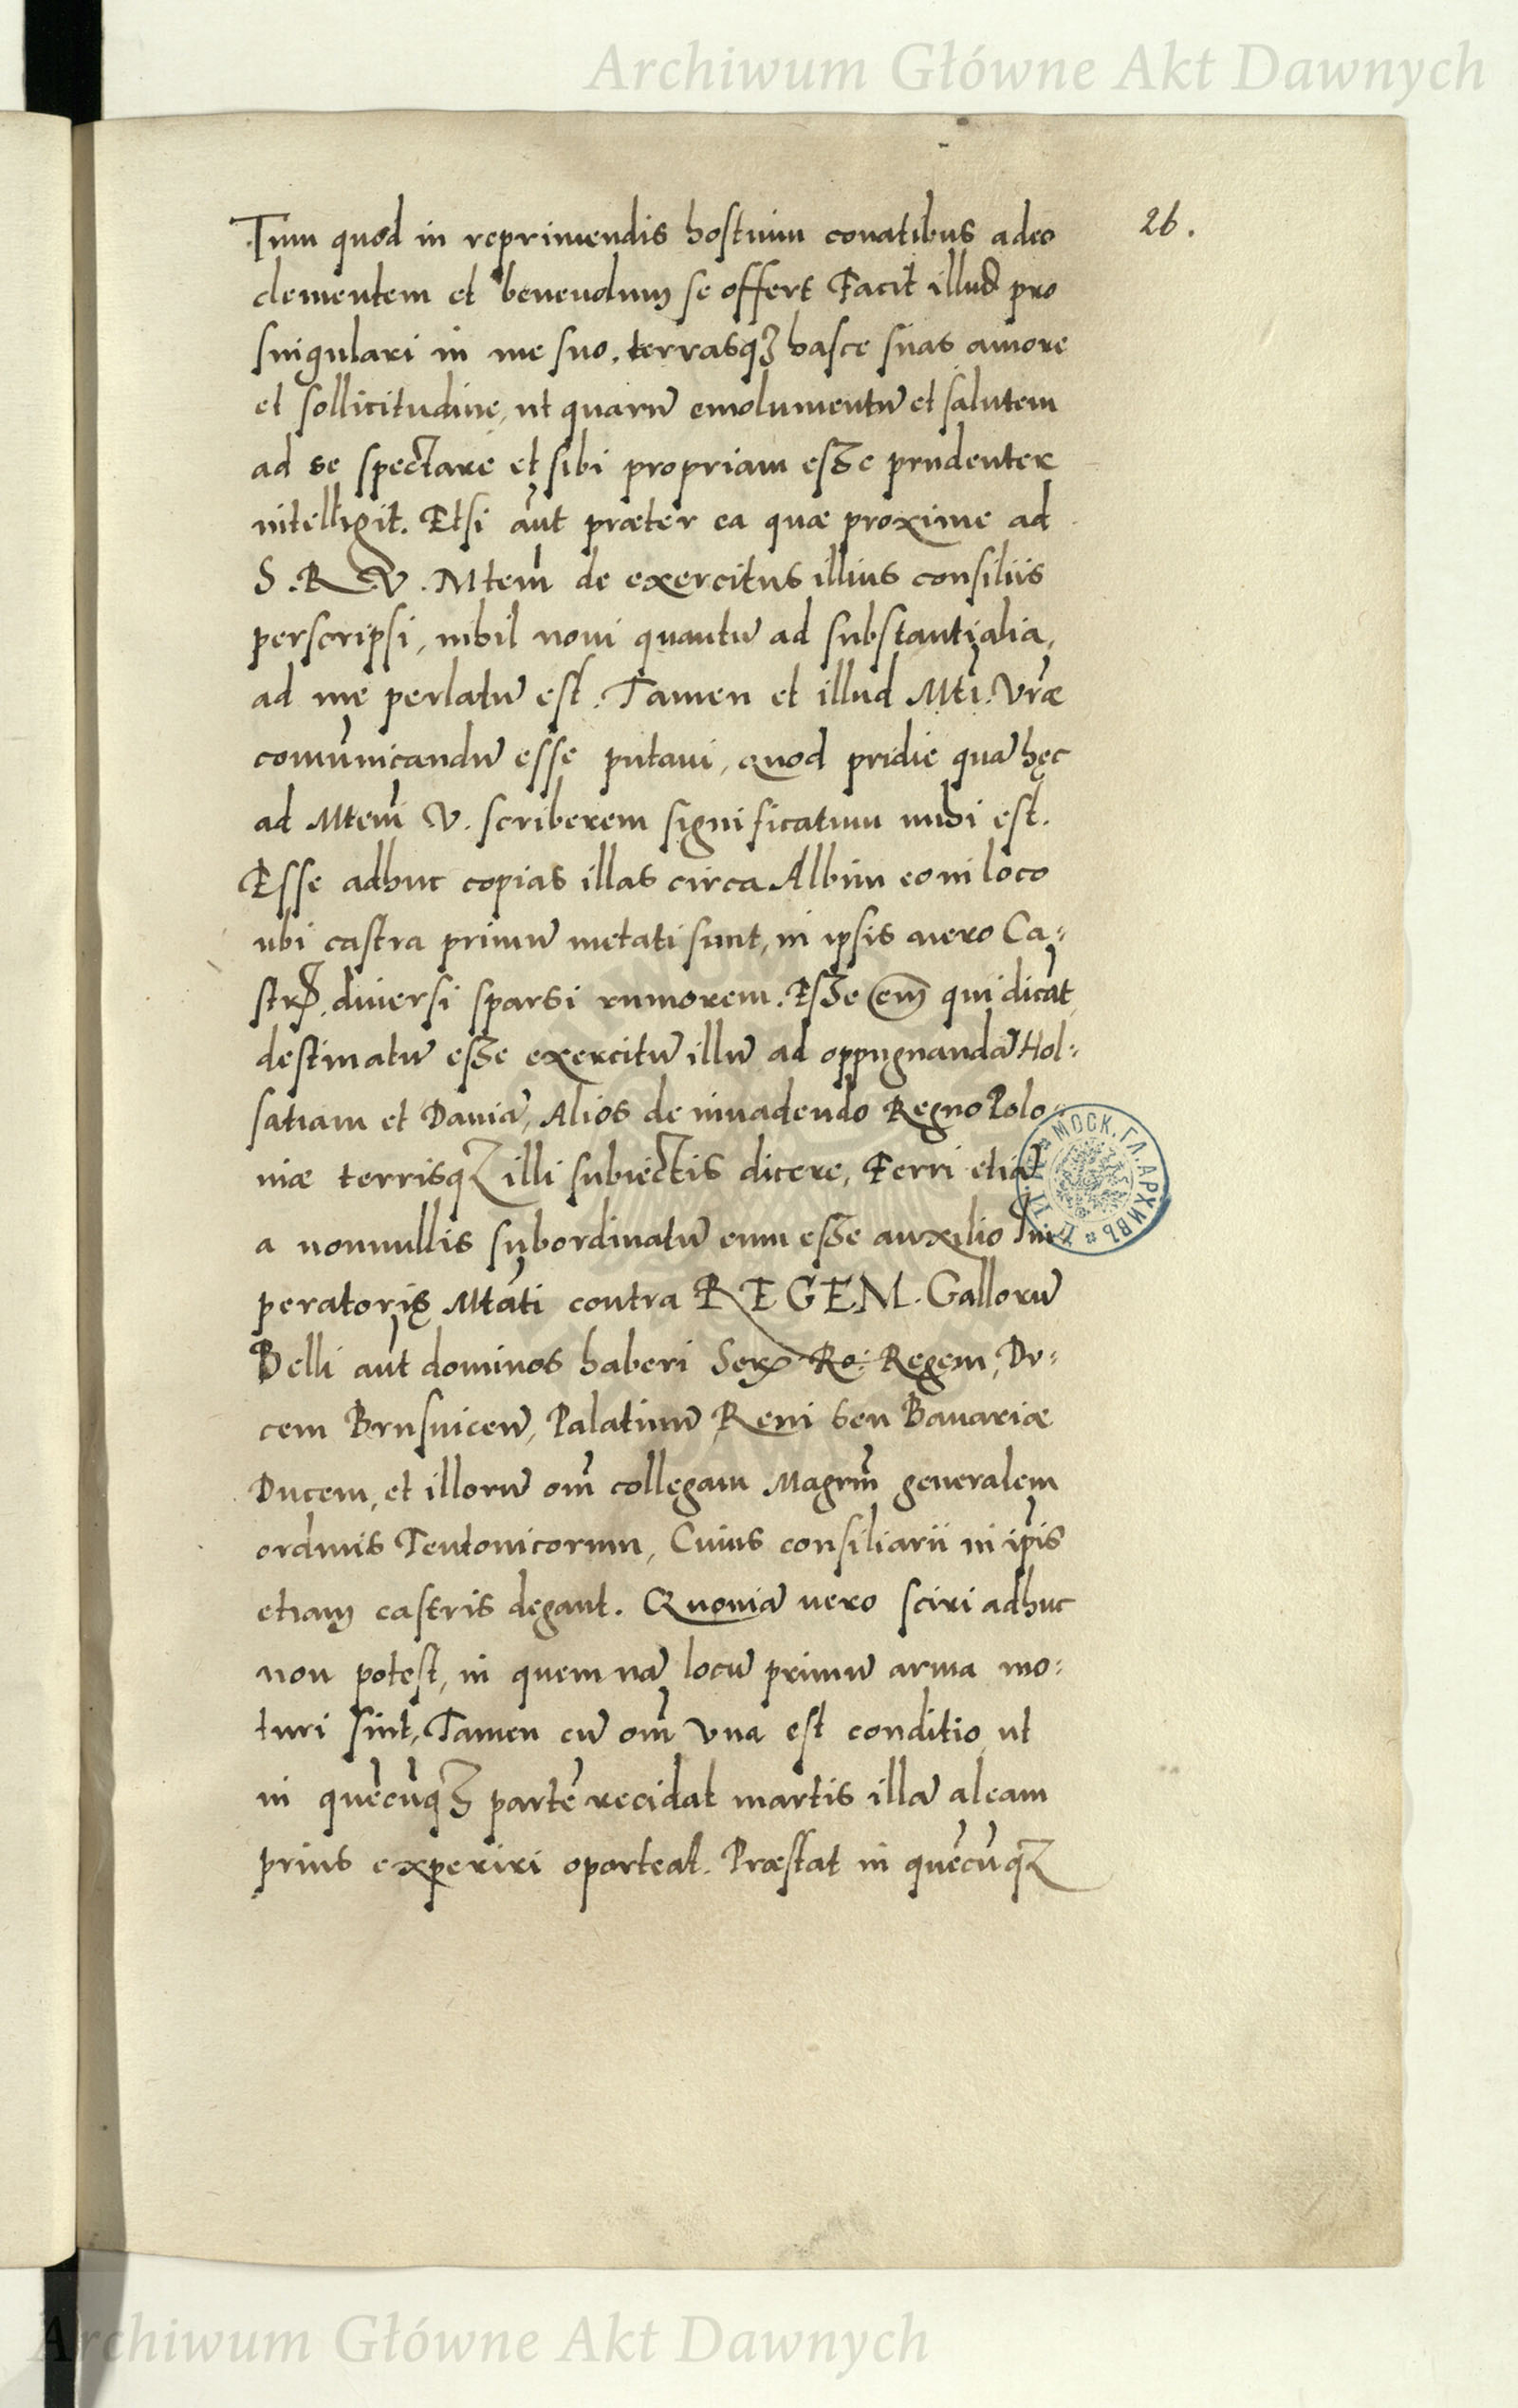 Archiwum Główne Akt Dawnych
26.
Tum quod in reprimendis hostium conatibus adeo
clementem et beneuolum se offert Facit illud pro
singulari in me suo, terrasqꝫ hasce suas amore
et sollicitudine, ut quarū emolumentū et salutem
ad se spectare et sibi propriam esse prudenter
intelligit. Etsi aūt præter ea quæ proxime ad
S. R. V. Mtem̄ de exercitus illius consiliis
perscripsi, nihil noui quantū ad substantialia,
ad me perlatū est. Tamen et illud Mti. Vræ
com̄unicandū esse putaui, quod pridie quā hęc
ad Mtem̄ V. scriberem significatum mihi est.
Esse adhuc copias illas circa Albim eo in loco
ubi castra primū metati sunt, in ipsis uero Ca=
strꝭ, diuersi sparsi rumorem. Esse em̄ qui dicāt
destinatū esse exercitū illū ad oppugnandā Hol=
satiam et Daniā, Alios de inuadendo Regno Polo=
niæ terrisqꝫ illi subiectis dicere, Ferri etiā
a nonnullis subordinatū eum esse auxilio Im
peratoris Mtāti contra REGEM. Gallorū
Belli aūt dominos haberi Ser. Ro: Regem, Du=
cem Brusuicen̄, Palatinū Reni seu Bauariæ
Ducem, et illorū om̄ collegam Magrm̄ generalem
ordinis Teutonicorum, Cuius consiliarii in ip̄is
etiam castris degant. Quoniā uero sciri adhuc
non potest, in quem nā locū primū arma mo=
turi sint, Tamen cū om̄ vna est conditio, ut
in quēcūqꝫ partē recidat martis illā aleam
prius experiri oporteat. Præstat in quēcūqꝫ
МОСК. ГЛ. АРХИВЪ
Archiwum Główne Akt Dawnych